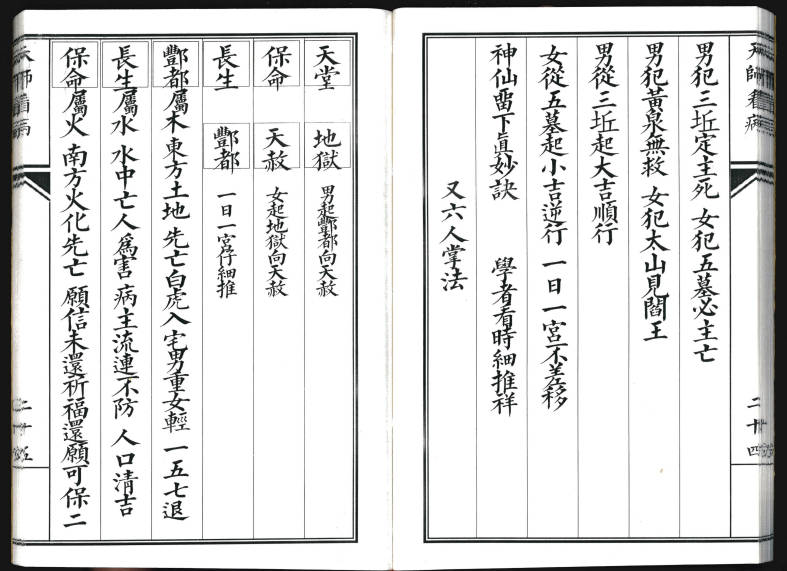 天師看病
二十四
男犯三坵定主死 女犯五墓必主亡
男犯黃泉無救 女犯太山見閻王
男從三坵起大吉順行
女從五墓起小吉逆行 一日一宮不差移
神仙畱下眞妙訣 學者看時細推祥
又六人掌法
天堂 地獄 男起酆都向天赦
保命 天赦 女起地獄向天赦
長生 酆都 一日一宮仔細推
酆都屬木 東方土地 先亡白虎入宅男重女輕 一五七退
長生屬水 水中亡人爲害 病主流連不防 人口清吉
保命屬火 南方火化先亡 願信未還祈福還願可保二
天師看病
二十五